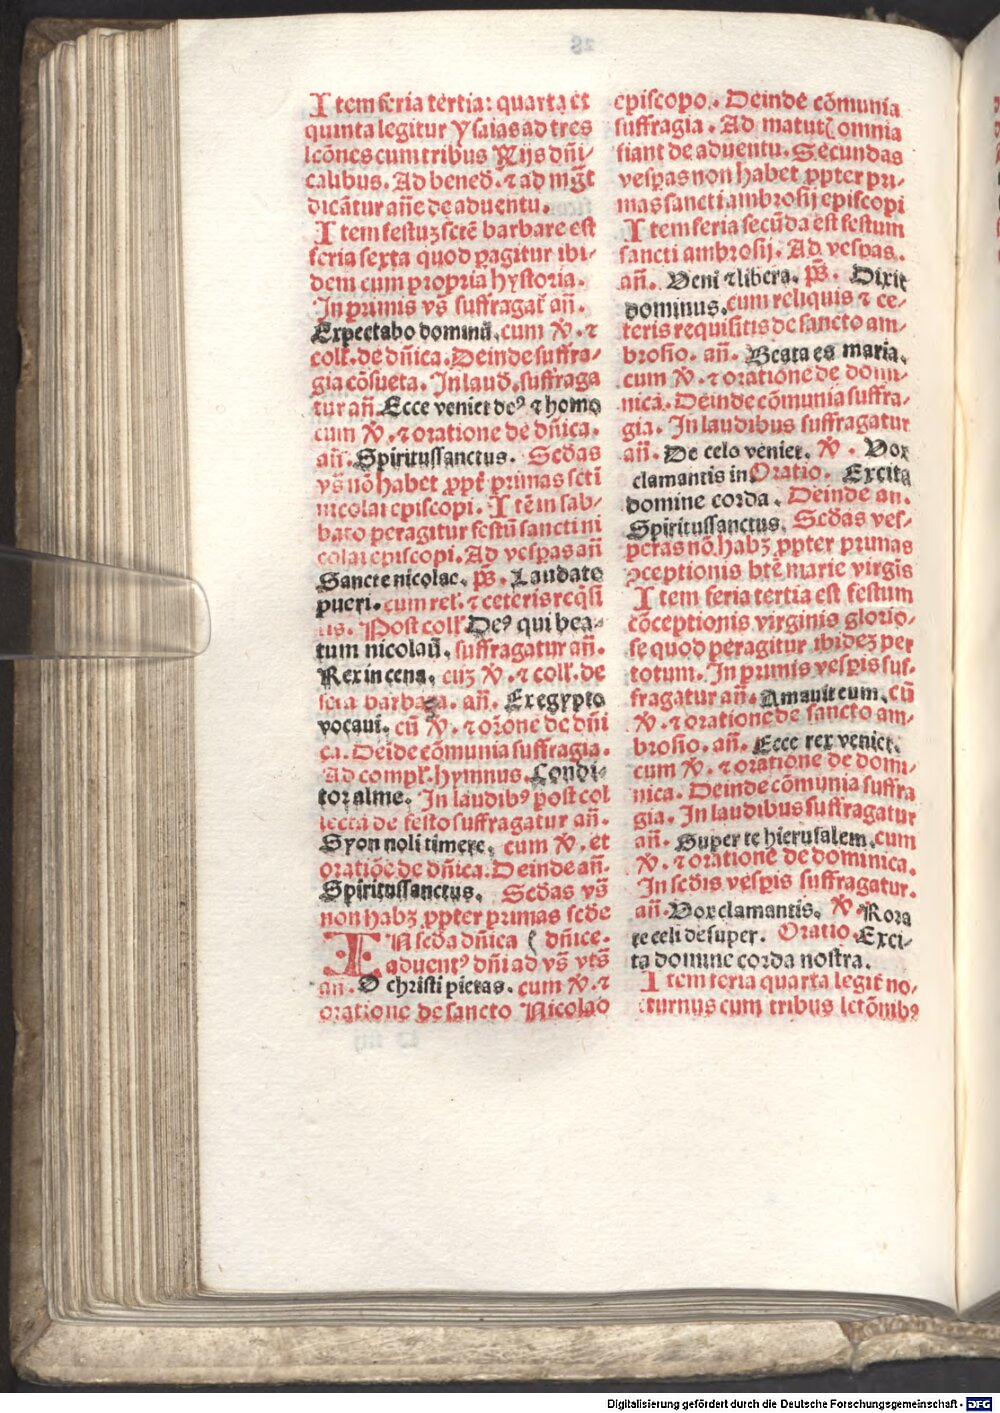 Item feria tertia: quarta et
quinta legitur Ysaias ad tres
lcōnes cum tribus Rijs dn̄i/
calibus. Ad bened̄. ⁊ ad mḡt
dicātur an̄e de aduentu.
Item festuꝫ sctē barbare est
feria sexta quod ꝑagitur ibi-
dem cum propria hystoria.
In primis vs̄ suffragat̄ an̄.
Expectabo dominū. cum ℣. ⁊
coll̄. de dn̄ica. Deinde suffra/
gia cōsueta. In laud̄. suffraga
tur an̄ Ecce veniet deꝰ ⁊ homo
cum ℣. ⁊ oratione de dn̄ica.
an̄. Spiritussanctus. Scd̄as
vs̄ nō habet ꝓpt̄ primas scti
nicolai episcopi. Itē in sab/
bato peragitur festū sancti ni
colai episcopi. Ad vesꝑas an̄
Sancte nicolae. ps̄. Laudate
pueri. cum rel̄. ⁊ ceteris reqsi
tis. Post coll̄ Deꝰ qui bea-
tum nicolaū. suffragatur an̄.
Rex in cena. cuꝫ ℣. ⁊ coll̄. de
scta barbara. an̄. Ex egypto
vocaui. cū ℣. ⁊ orōne de dn̄i
ca. Deīde cōmunia suffragia.
Ad compl̄. hymnus. Condi-
tor alme. In laudibꝰ post col
lectā de festo suffragatur an̄.
Syon noli timere. cum ℣. et
oratiōe de dn̄ica. Deinde an̄.
Spiritussanctus. Scd̄as vs̄
non habꝫ ꝓpter primas scd̄e
In scd̄a dn̄ica ( dn̄ice.
aduentꝰ dn̄i ad vs̄ vts̄
an̄. O christi pietas. cum ℣. ⁊
oratione de sancto Nicolao
episcopo. Deinde cōmunia
suffragia. Ad matut̄ omnia
fiant de aduentu. Secundas
vesꝑas non habet ꝓpter pri-
mas sancti ambrosij episcopi
Item feria secūda est festum
sancti ambrosij. Ad vesꝑas.
an̄. Veni ⁊ libera. ps̄. Dixit
dominus. cum reliquis ⁊ ce-
teris requisitis de sancto am-
brosio. an̄. Beata es maria.
cum ℣. ⁊ oratione de domi-
nica. Deinde cōmunia suffra-
gia. In laudibus suffragatur
an̄. De celo veniet. ℣. Vox
clamantis in Oratio. Excita
domine corda. Deinde an.
Spiritussanctus. Scd̄as ves-
peras nō habꝫ ꝓpter primas
ꝯceptionis btē marie virgīs
Item feria tertia est festum
cōceptionis virginis glorio-
se quod peragitur ibideꝫ per
totum. In primis vesꝑis suf-
fragatur an̄. Amauit eum. cū
℣. ⁊ oratione de sancto am-
brosio. an̄. Ecce rex veniet.
cum ℣. ⁊ oratione de domi-
nica. Deinde cōmunia suffra
gia. In laudibus suffragatur
an̄. Super te hierusalem. cum
℣. ⁊ oratione de dominica.
In scd̄is vesꝑis suffragatur.
an̄. Vox clamantis. ℣. Rora
te celi desuper. Oratio. Exci-
ta domine corda nostra.
Item feria quarta legit̄ no-
cturnus cum tribus lctōnibꝰ
Digitalisierung gefördert durch die Deutsche Forschungsgemeinschaft - DFG